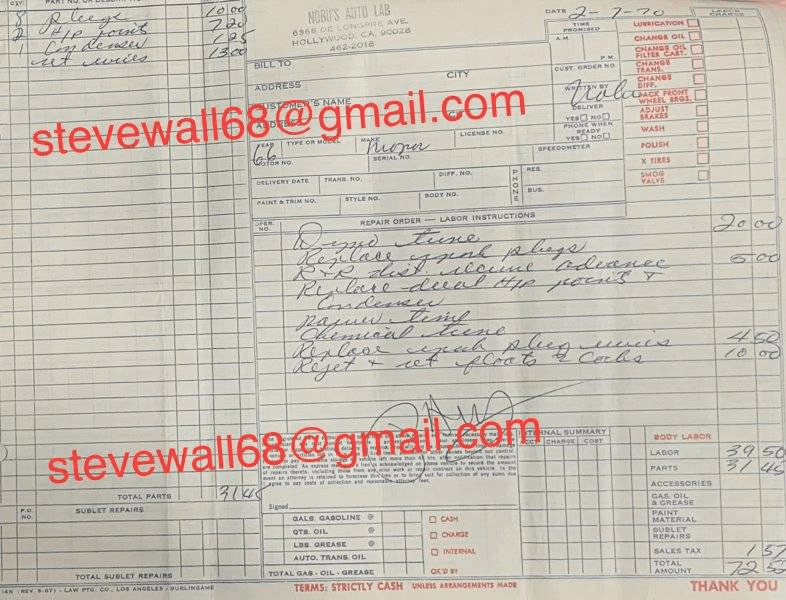 QTY. PART NO. OR DESCRIPTION
8 Plugs 10 00
2 H/p points 7 20
1 Condenser 1 25
set wires 13 00
NOBU'S AUTO LAB
6366 DE LONGPRE AVE.
HOLLYWOOD, CA. 90028
462-2018
DATE 2-7-70
LABOR CHARGE
TIME PROMISED
A.M.
P.M.
LUBRICATION
CHANGE OIL
CHANGE OIL FILTER CART.
CHANGE TRANS.
CHANGE DIFF.
PACK FRONT WHEEL BRGS.
ADJUST BRAKES
WASH
POLISH
X TIRES
SMOG VALVE
BILL TO
ADDRESS
CITY
CUST. ORDER NO.
CUSTOMER'S NAME
WRITTEN BY
DELIVER
YES NO
PHONE WHEN READY
YES NO
stevewall68@gmail.com
YEAR TYPE OR MODEL MAKE LICENSE NO.
66
MOTOR NO. SERIAL NO. SPEEDOMETER
DELIVERY DATE TRANS. NO. DIFF. NO. PHONE RES.
BUS.
PAINT & TRIM NO. STYLE NO. BODY NO.
OPER. NO. REPAIR ORDER — LABOR INSTRUCTIONS
Dyno tune 20 00
Replace spark plugs
R+R dist. recurve advance 5 00
Replace dual H/p points +
Condenser
power time
Chemical tune
Replace spark plug wires 4 50
Rejet + set floats 2 Carbs 10 00
stevewall68@gmail.com
INTERNAL SUMMARY
ACCT. CHARGE COST
BODY LABOR
LABOR 39 50
PARTS 31 45
ACCESSORIES
GAS, OIL & GREASE
PAINT MATERIAL
SUBLET REPAIRS
SALES TAX 1 57
TOTAL AMOUNT 72 52
TOTAL PARTS 31 45
P.O. NO. SUBLET REPAIRS
Signed
GALS. GASOLINE @
QTS. OIL @
LBS. GREASE @
AUTO. TRANS. OIL
TOTAL GAS - OIL - GREASE
CASH
CHARGE
INTERNAL
OK'D BY
TOTAL SUBLET REPAIRS
(REV. 9-67) - LAW PTG. CO., LOS ANGELES - BURLINGAME
TERMS: STRICTLY CASH UNLESS ARRANGEMENTS MADE
THANK YOU